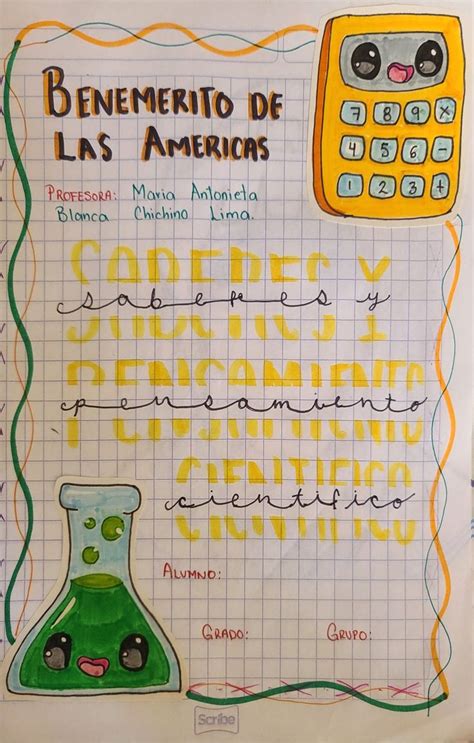 BENEMERITO DE
LAS AMERICAS
PROFESORA: Maria Antonieta
Blanca Chichino Lima.
SABERES Y
saberes y
PENSAMIENTO
pensamiento
CIENTIFICO
cientifico
ALUMNO:
GRADO: GRUPO:
7 8 9 ×
4 5 6 -
1 2 3 +
Scribe